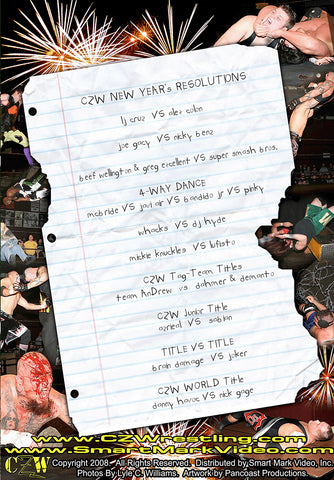 CZW NEW YEAR'S RESOLUTIONS
lj cruz VS alex colon
joe gacy VS nicky benz
beef wellington & greg excellent VS super smash bros.
4-WAY DANCE
mcbride VS javi air VS bandido jr VS pinky
whacks VS dj hyde
mickie knuckles VS lufisto
CZW Tag-Team Titles
team AnDrew vs dahmer & demanto
CZW Junior Title
azrieal VS sabian
TITLE VS TITLE
brain damage VS joker
CZW WORLD Title
danny havoc VS nick gage
www.CZWrestling.com
www.SmartMarkVideo.com
CZW Copyright 2008. All Rights Reserved. Distributed by Smart Mark Video, Inc.
Photos By Lyle C. Williams. Artwork by Pancoast Productions.